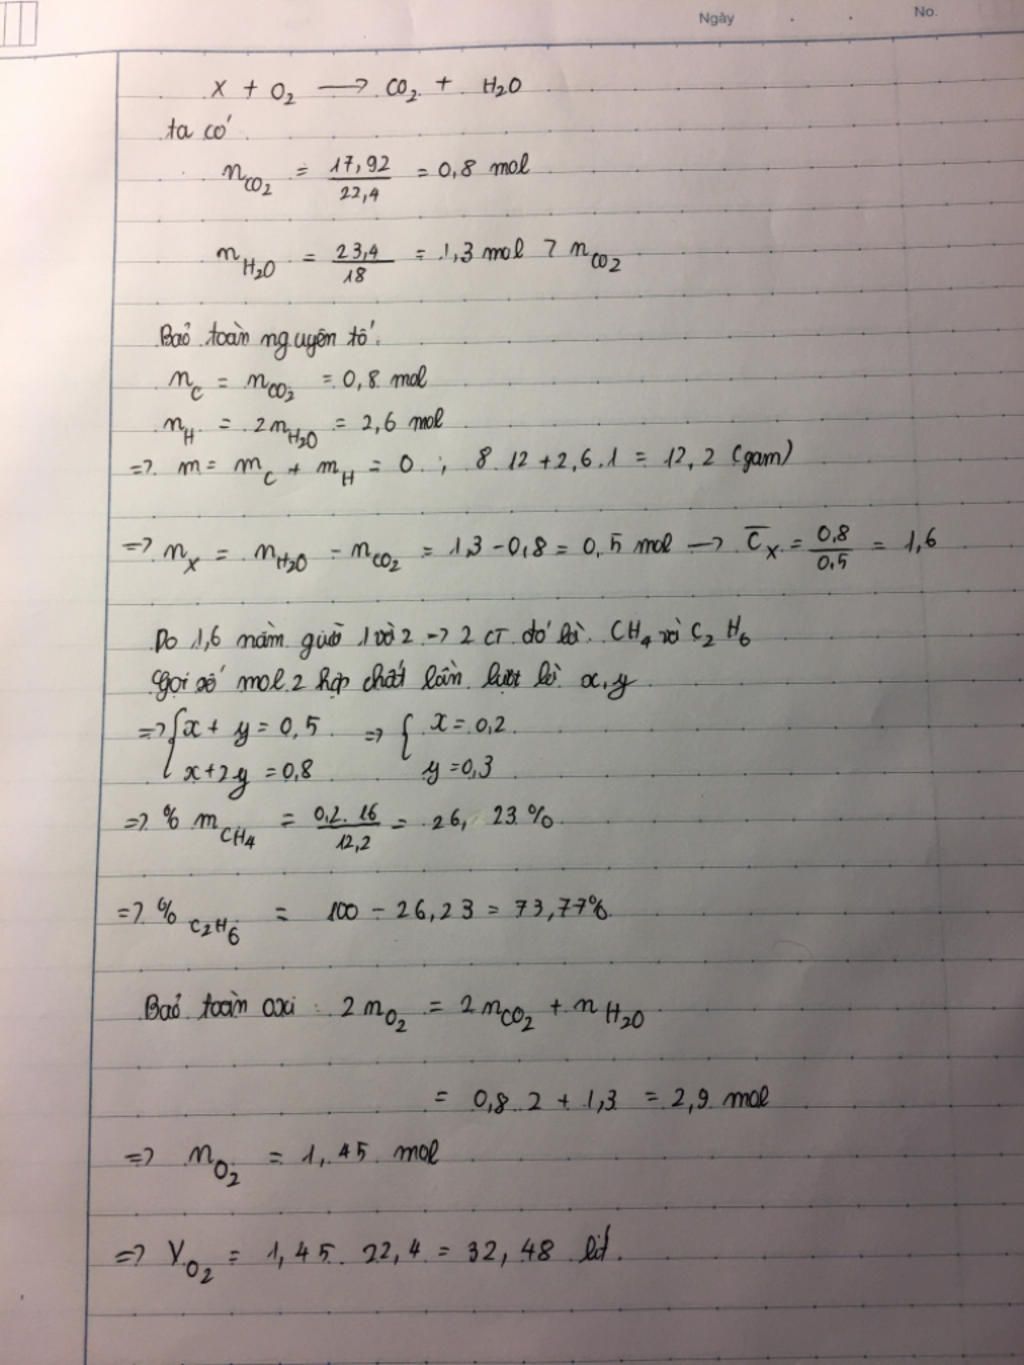 Ngày . . No.
X + O₂ ⟶ CO₂ + H₂O
ta có
n_CO₂ = 17,92/22,4 = 0,8 mol
n_H₂O = 23,4/18 = 1,3 mol > n_CO₂
Bảo toàn nguyên tố:
n_C = n_CO₂ = 0,8 mol
n_H = 2n_H₂O = 2,6 mol
=> m = m_C + m_H = 0,8.12 + 2,6.1 = 12,2 (gam)
=> n_X = n_H₂O - n_CO₂ = 1,3 - 0,8 = 0,5 mol → C̅_X = 0,8/0,5 = 1,6
Do 1,6 nằm giữa 1 và 2 → 2 CT đó là CH₄ và C₂H₆
Gọi số mol 2 hợp chất lần lượt là x,y
=> { x + y = 0,5 => { x = 0,2
x + 2y = 0,8 y = 0,3
=> % m_CH₄ = 0,2.16/12,2 = 26,23%
=> % C₂H₆ = 100 - 26,23 = 73,77%
Bảo toàn oxi : 2n_O₂ = 2n_CO₂ + n_H₂O
= 0,8.2 + 1,3 = 2,9 mol
=> n_O₂ = 1,45 mol
=> V_O₂ = 1,45.22,4 = 32,48 lít.